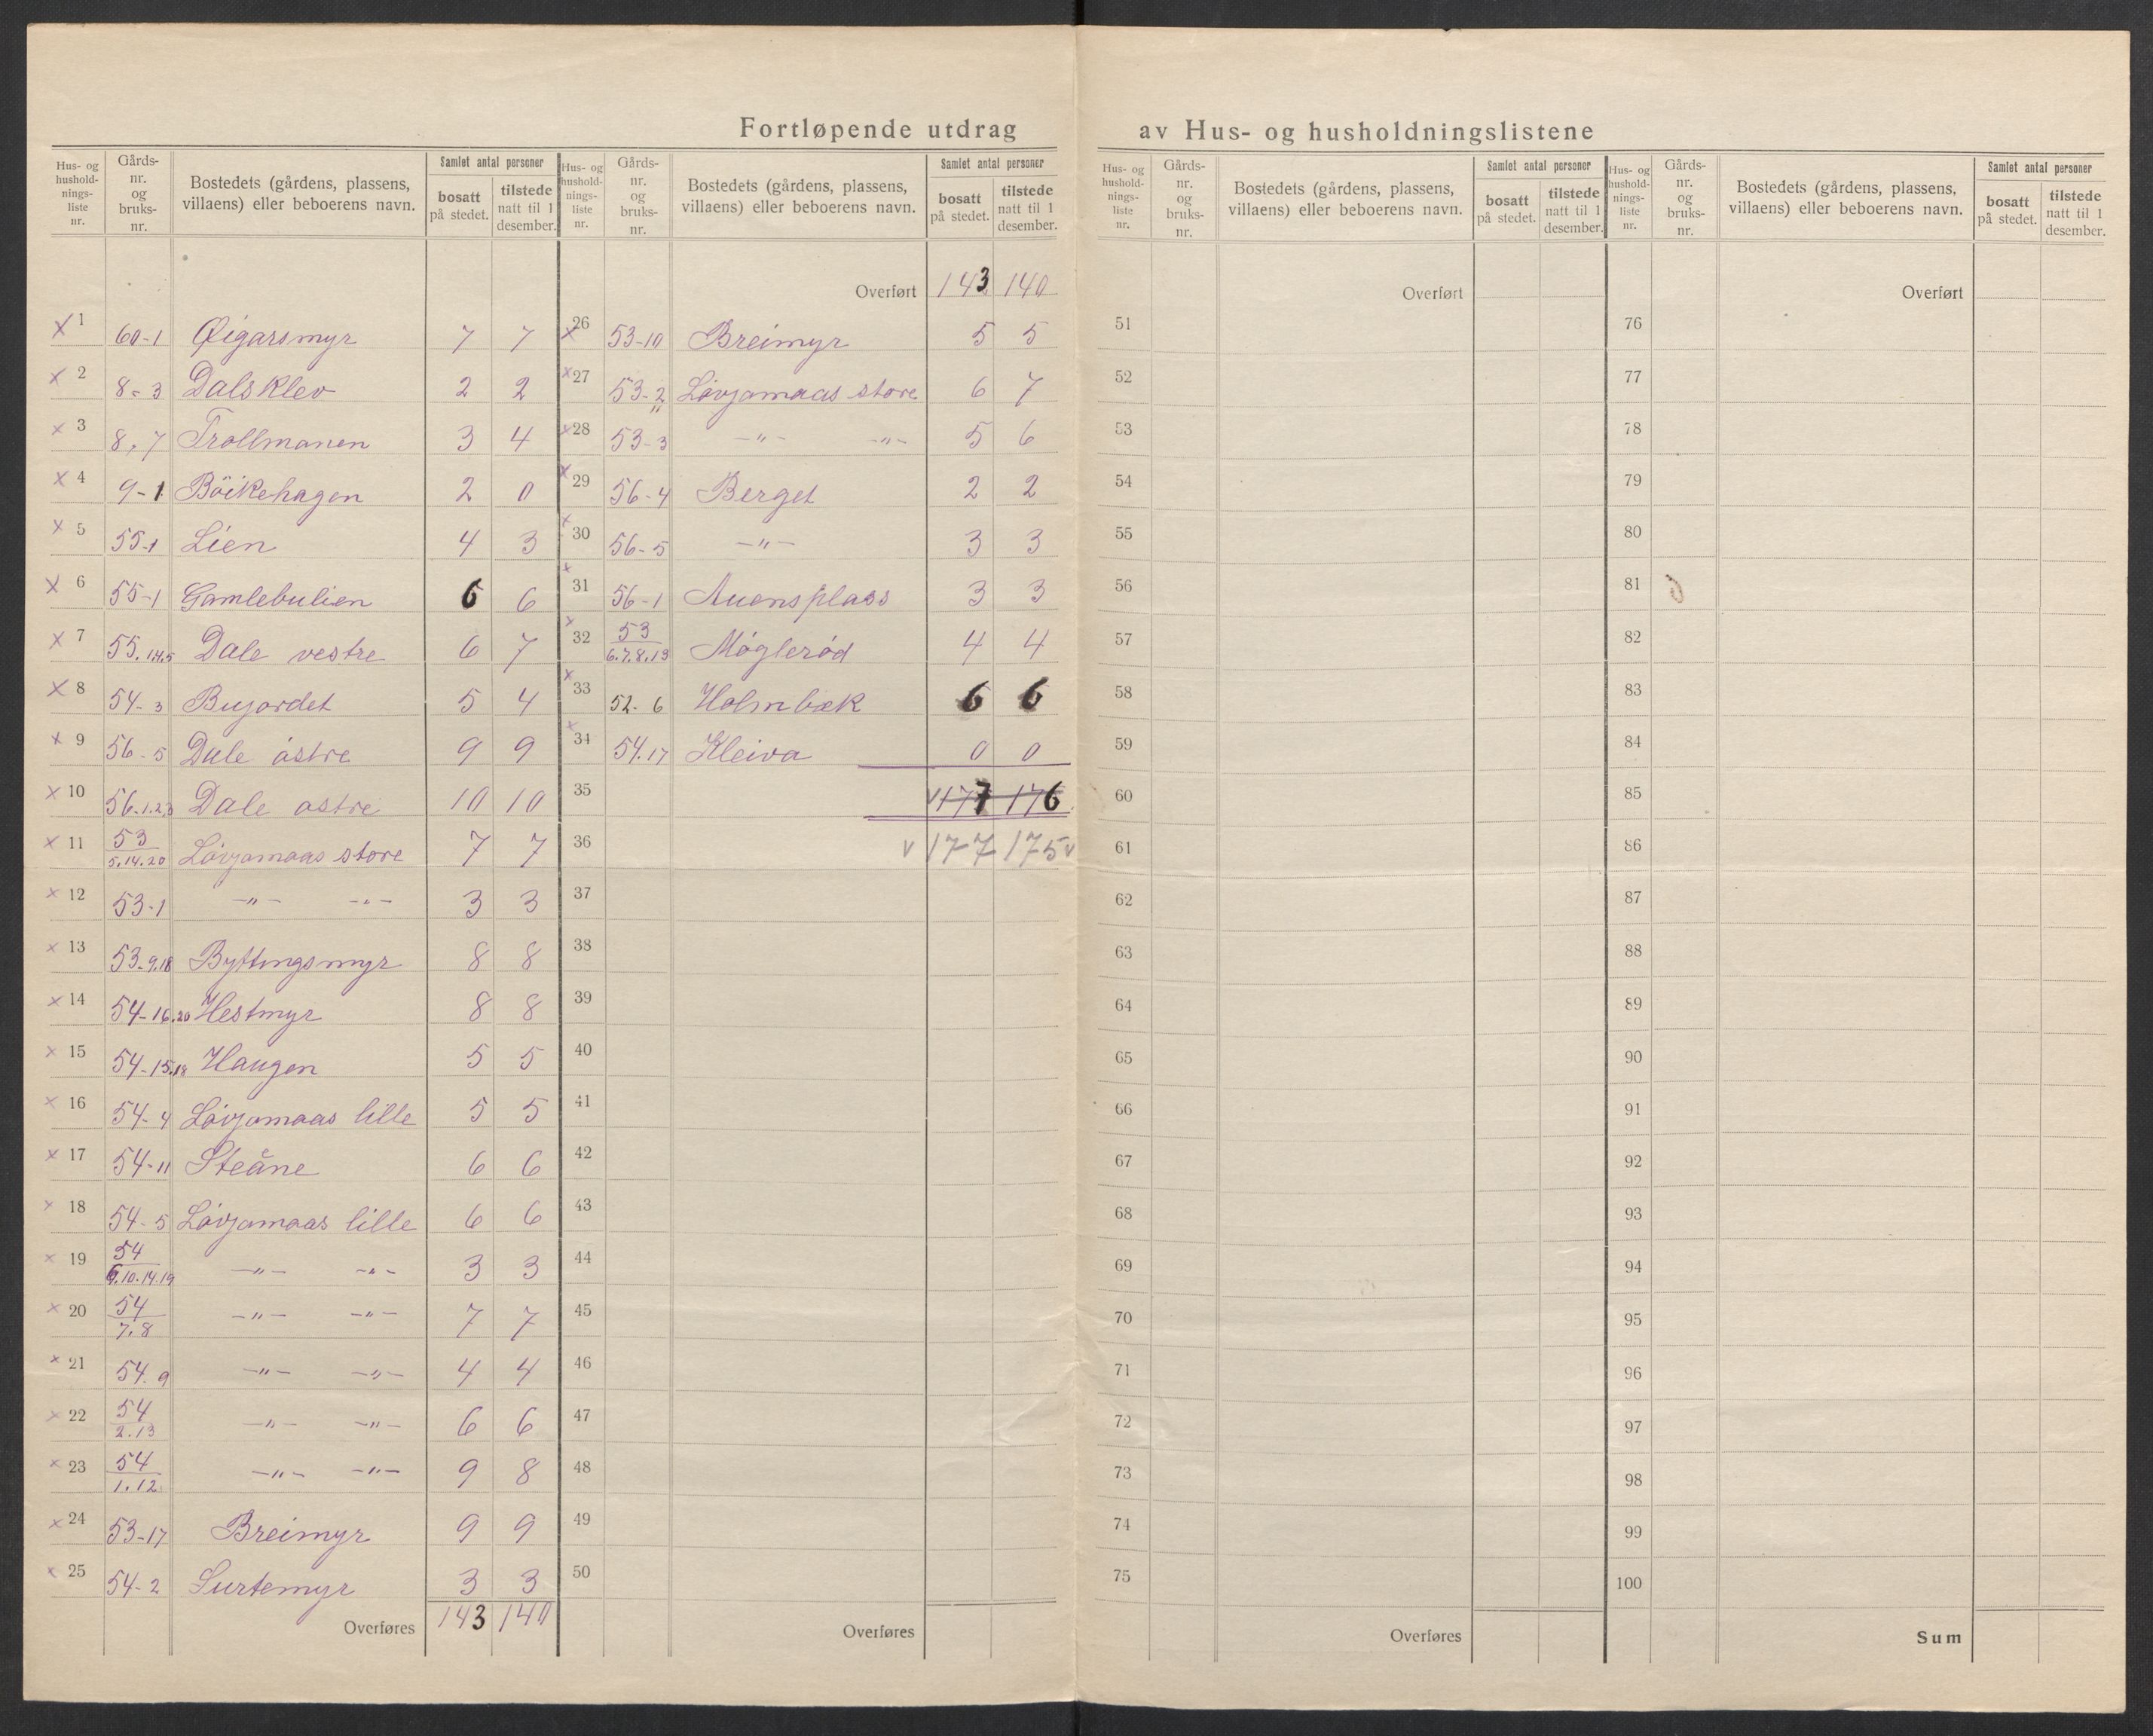 Fortløpende utdrag av Hus- og husholdningslistene
Hus- og hushold-nings-liste nr. Gårds-nr. og bruks-nr. Bostedets (gårdens, plassens, villaens) eller beboerens navn. Samlet antal personer bosatt på stedet. tilstede natt til 1 desember.
1 60-1 Øigarsmyr 7 7
2 8-3 Dalsklev 2 2
3 8,7 Trollmanen 3 4
4 9-1 Böikehagen 2 0
5 55-1 Lien 4 3
6 55-1 Gamlebulien 6 6
7 55.1.4.5 Dale vestre 6 7
8 54-3 Bujordet 5 4
9 56-5 Dale östre 9 9
10 56.1.2.3 Dale ostre 10 10
11 53 5.14.20 Lövjomaas store 7 7
12 53-1 -"- -"- 3 3
13 53-9.18 Byttingsmyr 8 8
14 54-16.20 Hestmyr 8 8
15 54-15.18 Haugen 5 5
16 54-4 Lövjomaas lille 5 5
17 54-11 Steåne 6 6
18 54-5 Lövjomaas lille 6 6
19 54 6.10.14.19 -"- -"- 3 3
20 54 7.8 -"- -"- 7 7
21 54.9 -"- -"- 4 4
22 54 2.13 -"- -"- 6 6
23 54 1.12 -"- -"- 9 8
24 53-17 Breimyr 9 9
25 54-2 Surtemyr 3 3
Overføres 143 140
Hus- og hushold-nings-liste nr. Gårds-nr. og bruks-nr. Bostedets (gårdens, plassens, villaens) eller beboerens navn. Samlet antal personer bosatt på stedet. tilstede natt til 1 desember.
Overført 143 140
26 53-10 Breimyr 5 5
27 53-2 Lövjomaas store 6 7
28 53-3 -"- -"- 5 6
29 56-4 Berget 2 2
30 56-5 -"- 3 3
31 56-1 Auensplass 3 3
32 53 6.7.8.13 Møglerød 4 4
33 52-6 Holmbæk 6 6
34 54.17 Kleiva 0 0
35 v 177 176
36 v 177 175 v
37
38
39
40
41
42
43
44
45
46
47
48
49
50
Overføres
Hus- og hushold-nings-liste nr. Gårds-nr. og bruks-nr. Bostedets (gårdens, plassens, villaens) eller beboerens navn. Samlet antal personer bosatt på stedet. tilstede natt til 1 desember.
Overført
51
52
53
54
55
56
57
58
59
60
61
62
63
64
65
66
67
68
69
70
71
72
73
74
75
Overføres
Hus- og hushold-nings-liste nr. Gårds-nr. og bruks-nr. Bostedets (gårdens, plassens, villaens) eller beboerens navn. Samlet antal personer bosatt på stedet. tilstede natt til 1 desember.
Overført
76
77
78
79
80
81
82
83
84
85
86
87
88
89
90
91
92
93
94
95
96
97
98
99
100
Sum